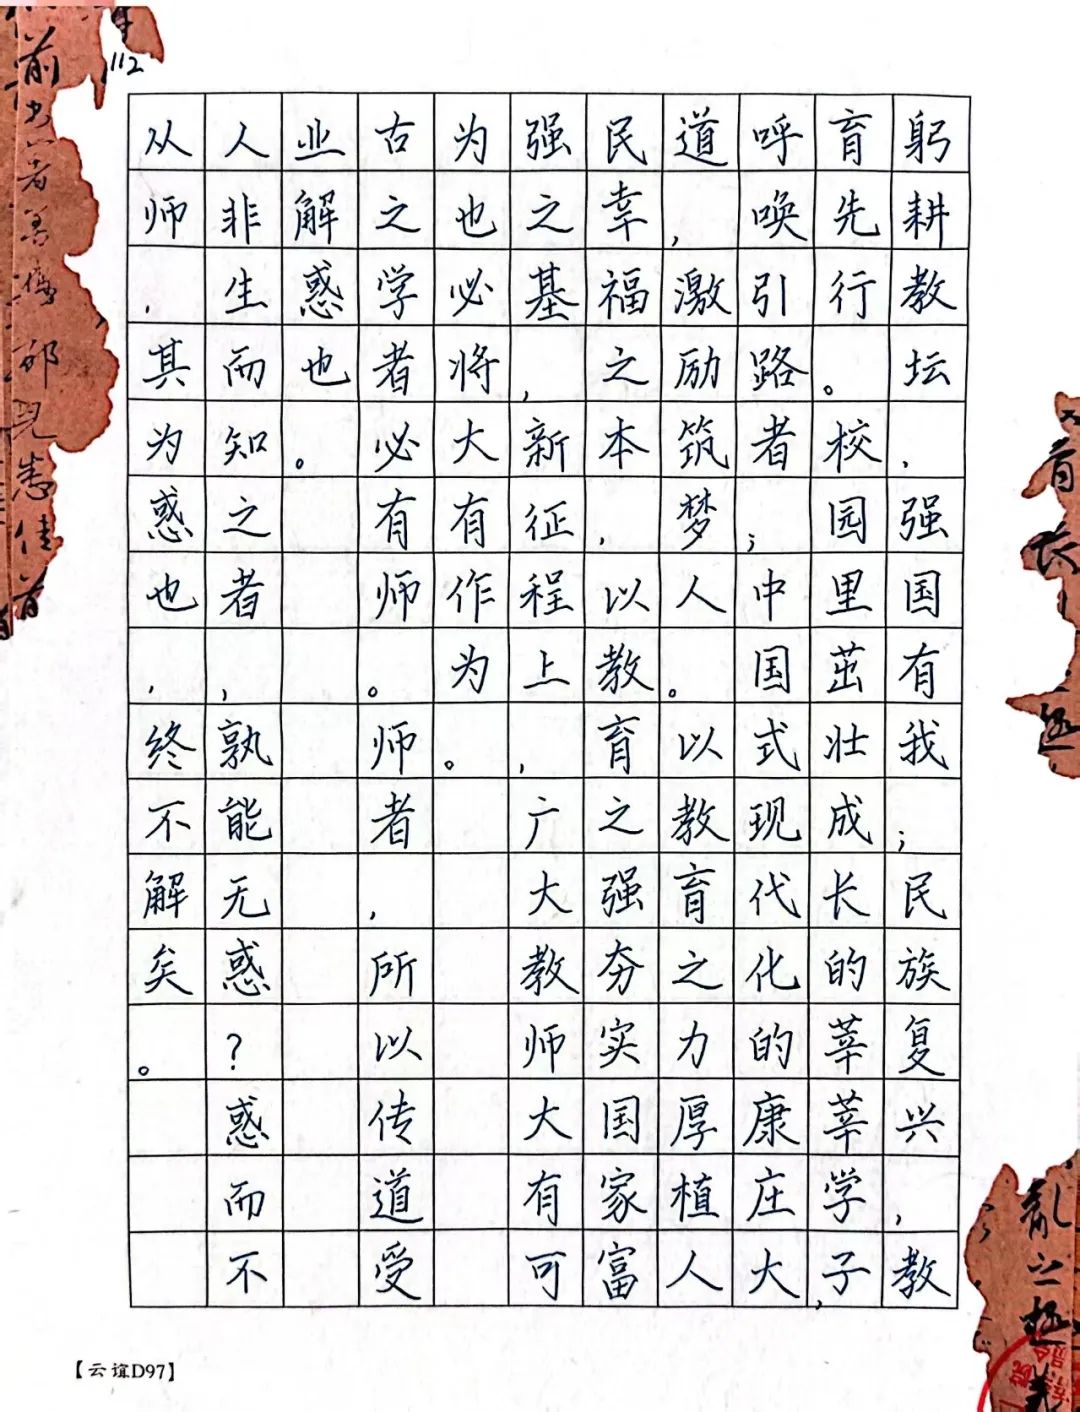 112
躬耕教坛，强国有我；民族复兴，教
育先行。校园里茁壮成长的莘莘学子，
呼唤引路者；中国式现代化的康庄大
道，激励筑梦人。以教育之力厚植人
民幸福之本，以教育之强夯实国家富
强之基，新征程上，广大教师大有可
为也必将大有作为。
古之学者必有师。师者，所以传道受
业解惑也。
人非生而知之者，孰能无惑？惑而不
从师，其为惑也，终不解矣。
【云谊D97】